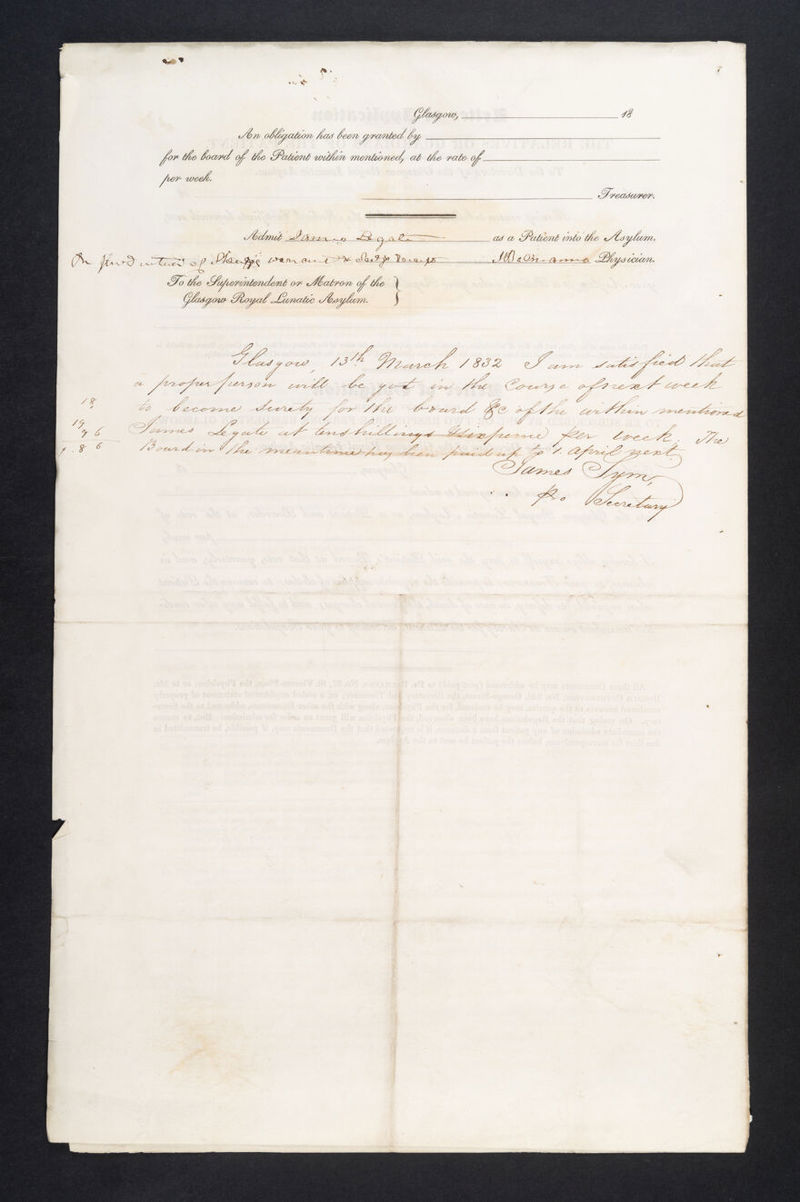 Glasgow, 18
An obligation has been granted by
for the board of the Patient within mentioned, at the rate of
per week.
Treasurer.
Admit James Legate as a Patient into the Asylum.
On production of Sheriffs warrant & Physician.
To the Superintendent or Matron of the
Glasgow Royal Lunatic Asylum. }
Glasgow, 13th March 1832 I am satisfied that
a proper person will be got in the Course of next week
18
to become Surety for the board &c of the within mentioned
19
James Legate at ten shillings & Sixpence per week. The
7 6
Board in the meantime has been paid up to 1 April next
1 8 6
James Sym,
Secretary